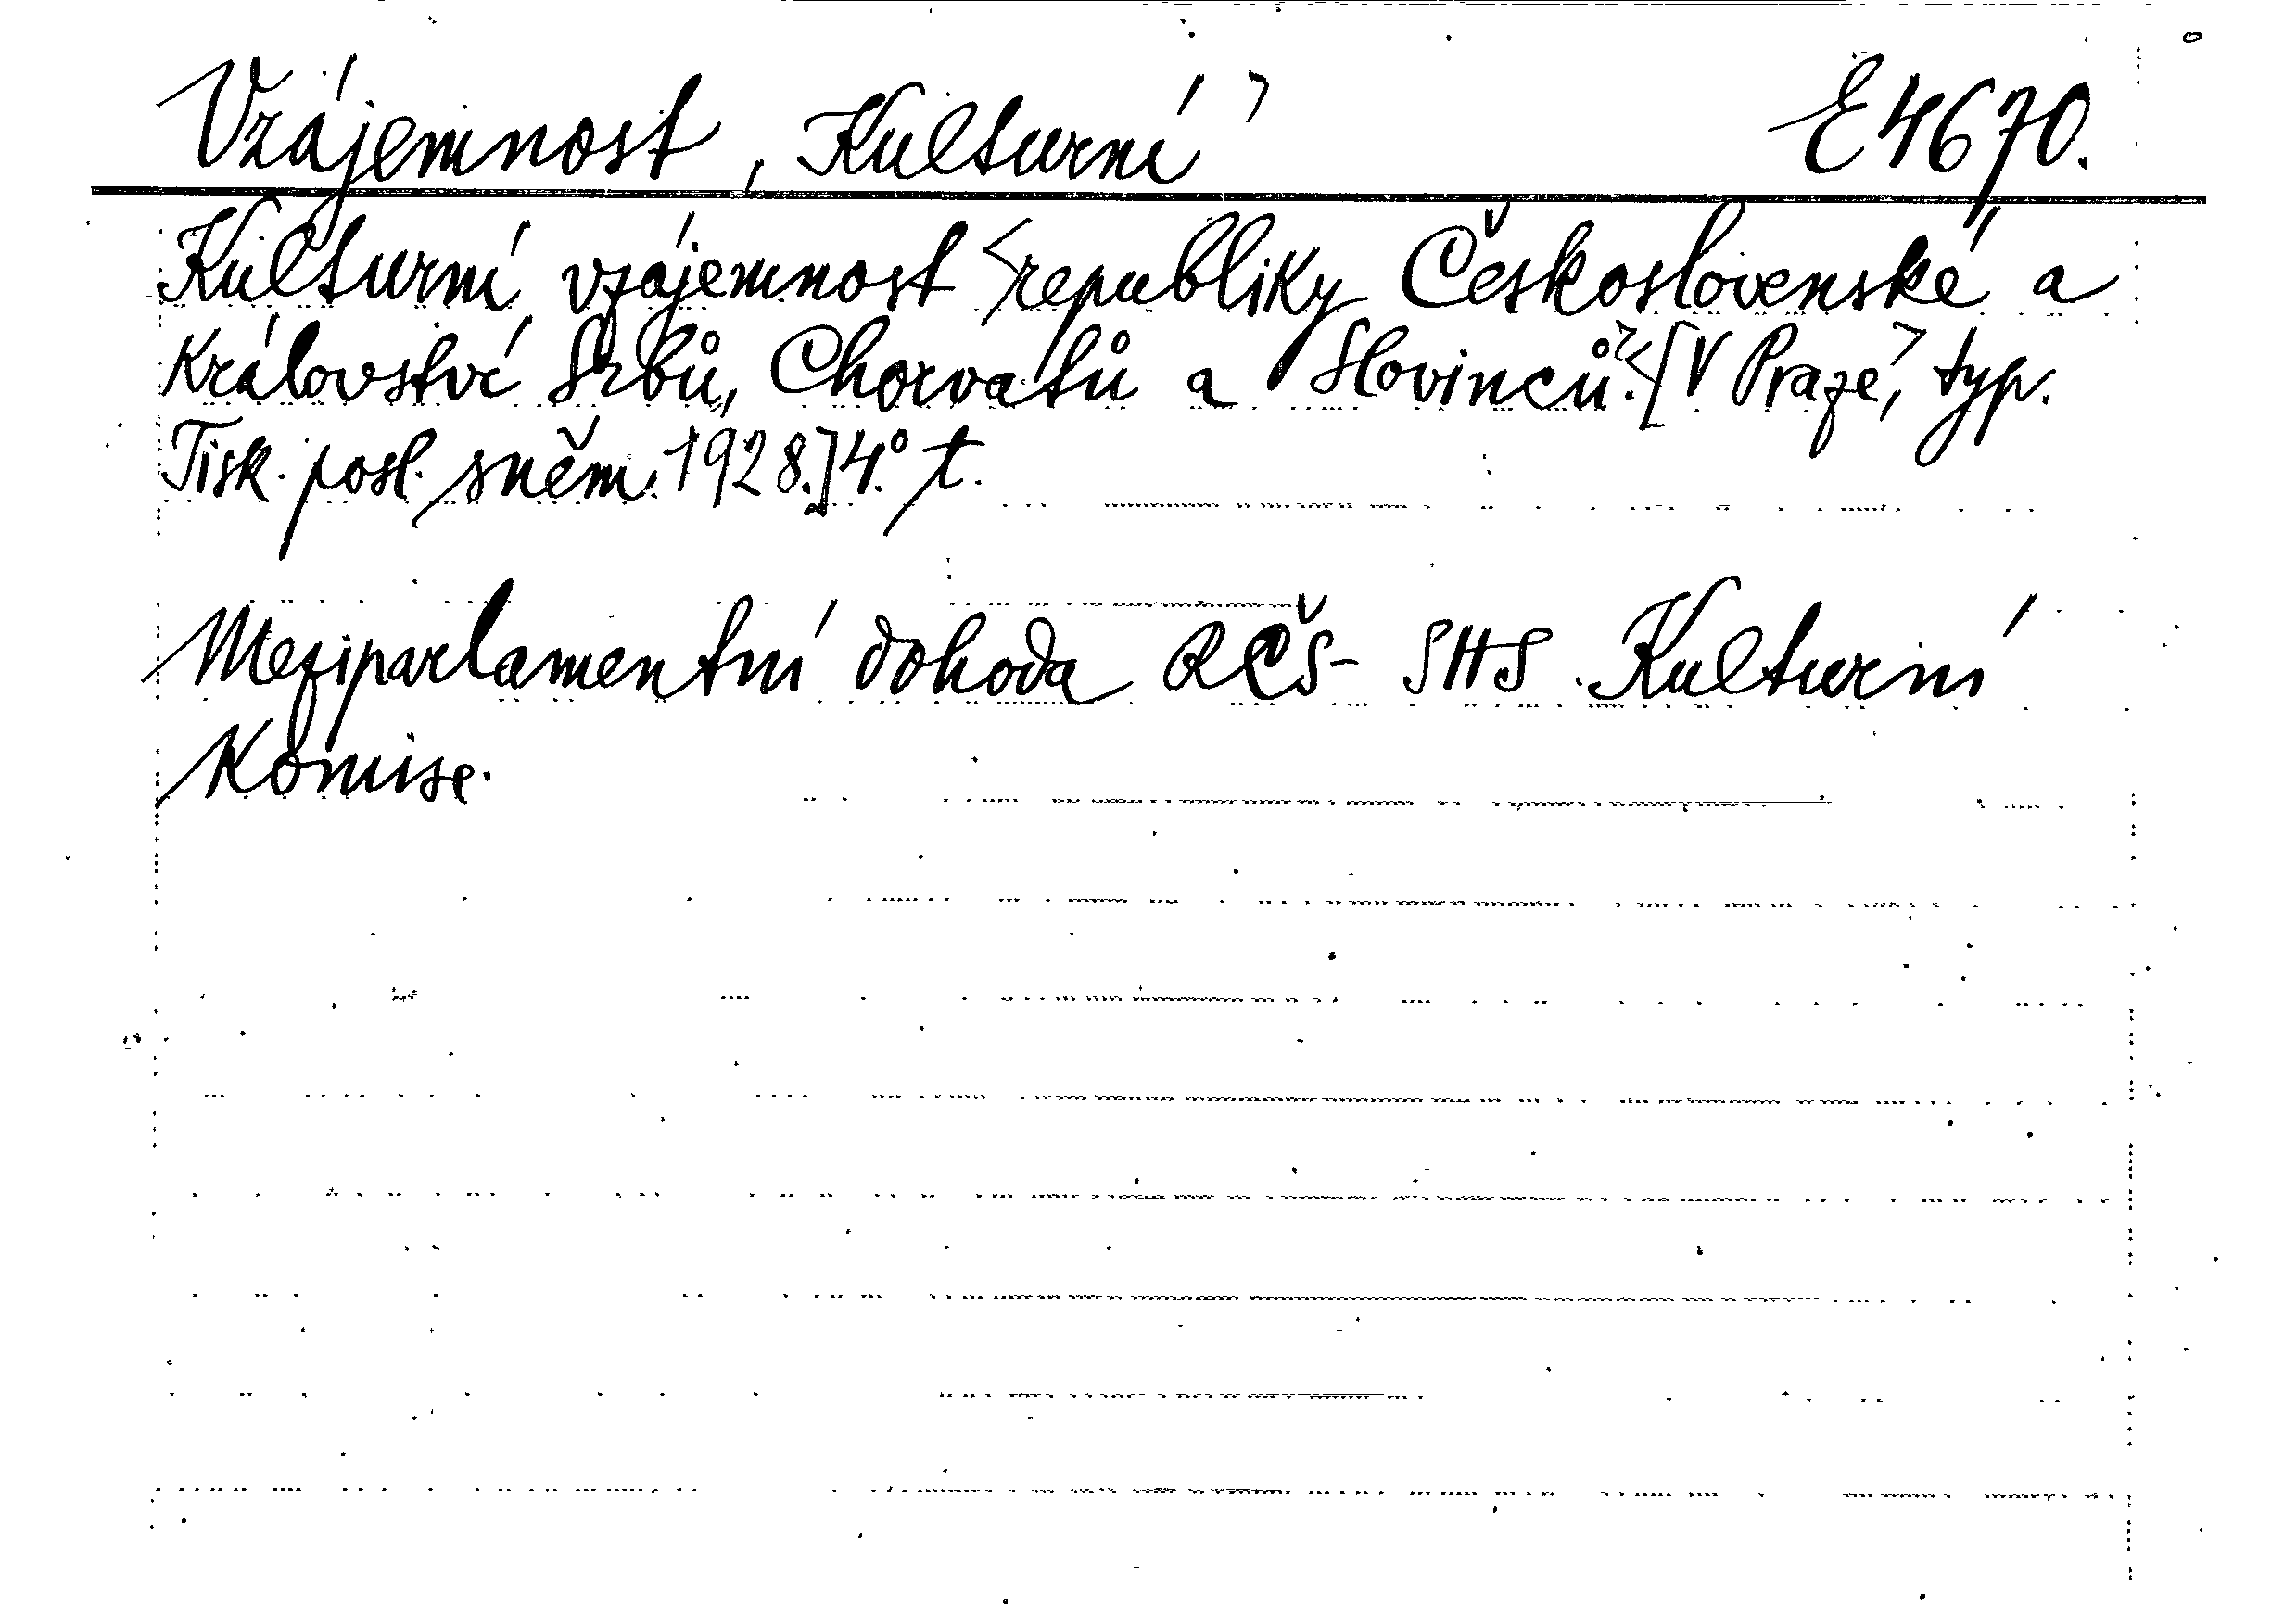 Vzájemnost, Kulturní> E4670.
Kulturní vzájemnost <republiky Československé a
Království Srbů, Chorvatů a Slovinců.><[V Praze,> typ.
Tisk. posl. sněm. 1928.] 4.° t.
Meziparlamentní dohoda RČS - SHS. Kulturní
Komise.